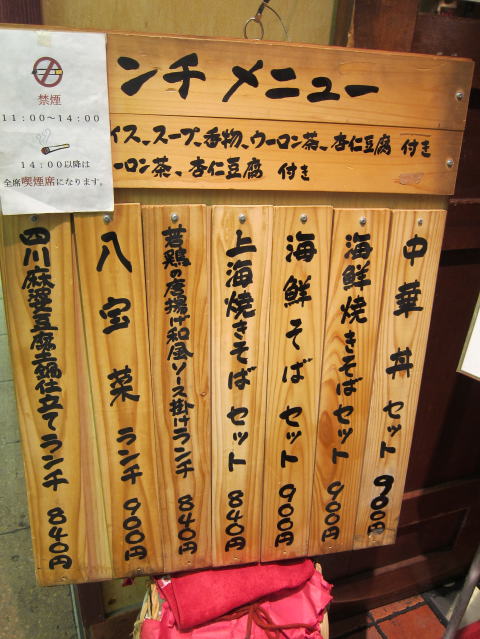 禁煙
11:00～14:00
14:00以降は
全席喫煙席になります。
ンチ メニュー
イス、スープ、香物、ウーロン茶、杏仁豆腐 付き
ーロン茶、杏仁豆腐 付き
中華丼セット 900円
海鮮焼きそばセット 900円
海鮮そばセット 900円
上海焼きそばセット 840円
若鶏の唐揚げ和風ソース掛けランチ 840円
八宝菜ランチ 900円
四川麻婆豆腐土鍋仕立てランチ 840円